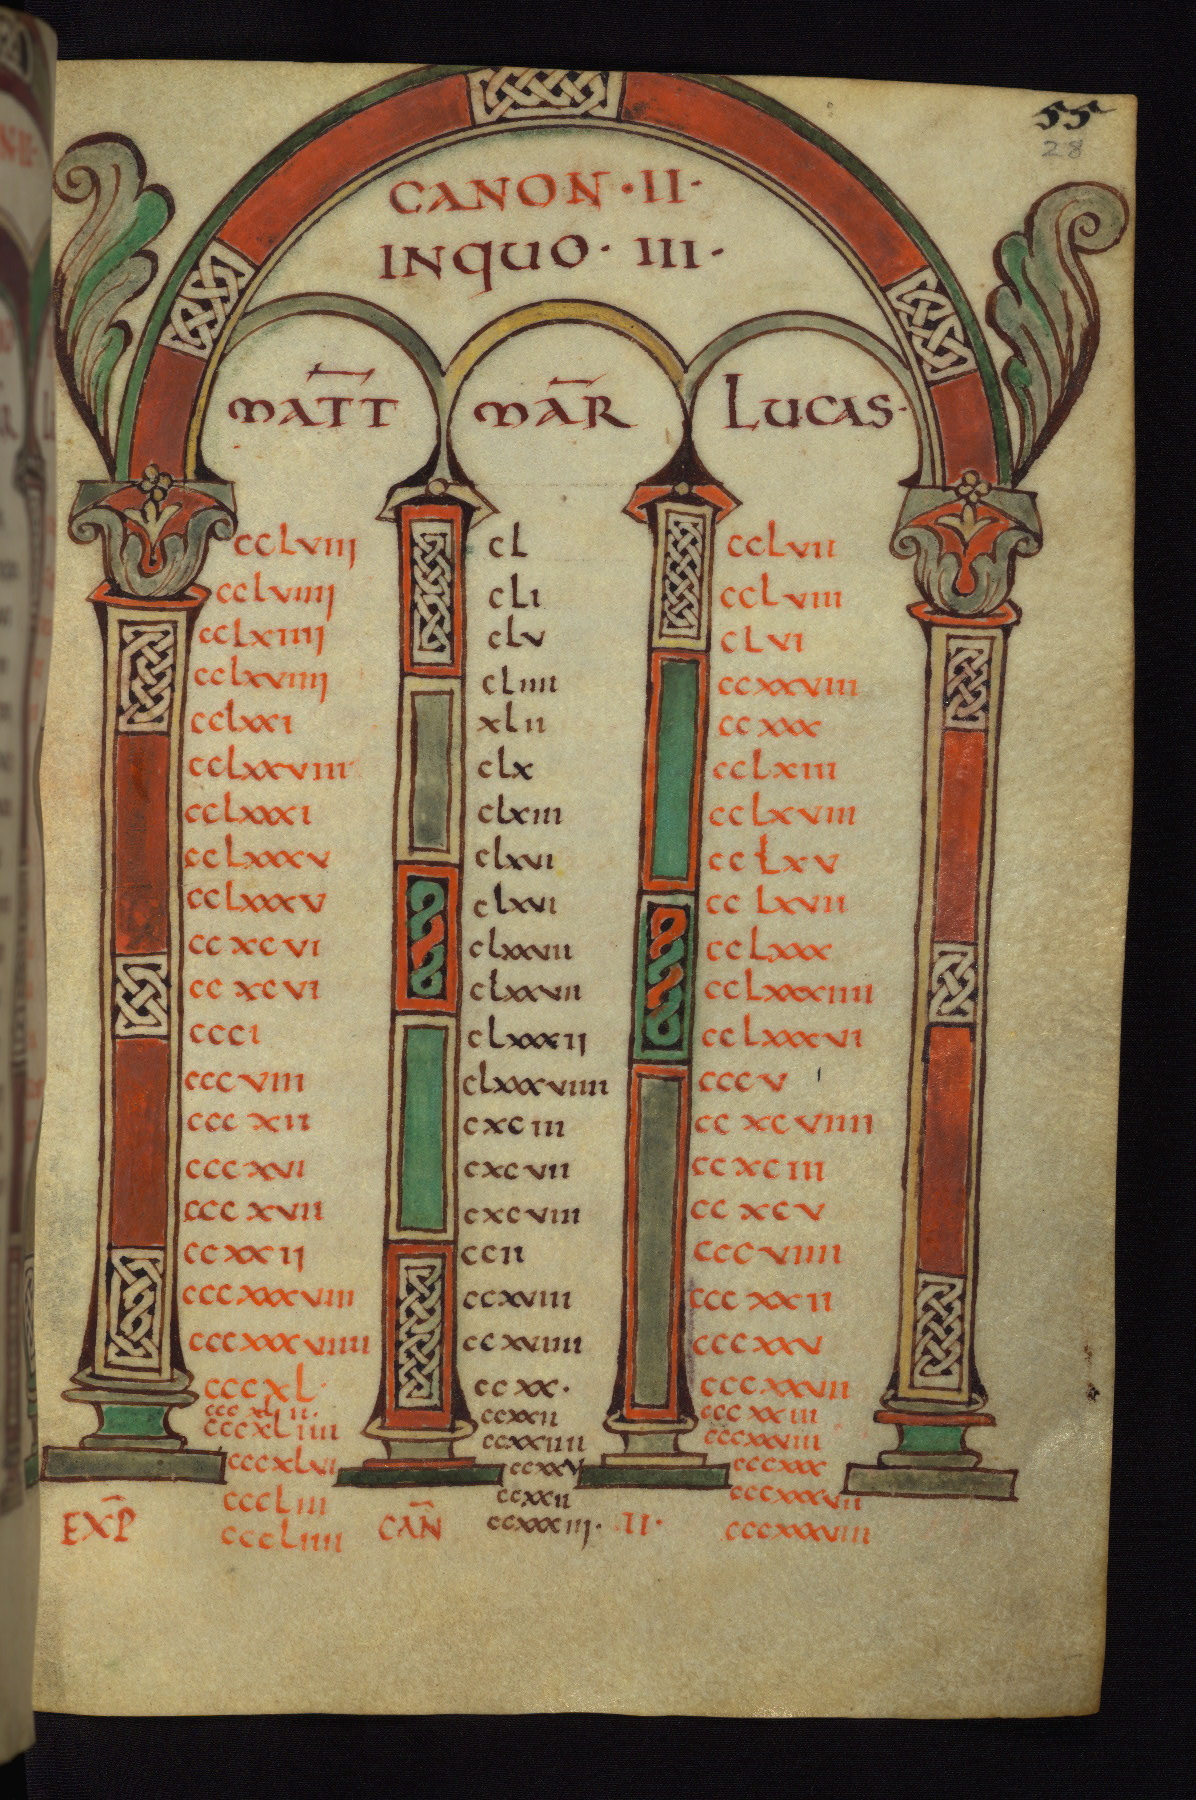 55
28
CANON · II ·
INQUO · III ·
MATT MAR LUCAS ·
CCLVIII CL CCLVII
CCLVIIII CLI CCLVIII
CCLXIIII CLV CLVI
CCLXVIIII CLIIII CCXXVIII
CCLXXI XLII CCXXX
CCLXXVIII CLX CCLXIII
CCLXXXI CLXIII CCLXVIII
CCLXXXV CLXVI CCLXV
CCLXXXV CLXVI CCLXVII
CCXCVI CLXXVII CCLXXX
CCXCVI CLXXVII CCLXXXIIII
CCCI CLXXXII CCLXXXVI
CCCVIII CLXXXVIIII CCCV
CCCXII CXCIII CCXCVIIII
CCCXVI CXCVII CCXCIII
CCCXVII CXCVIII CCXCV
CCXXII CCII CCCVIIII
CCCXXXVIII CCXVIII CCCXXII
CCCXXXVIIII CCXVIIII CCCXXV
CCCXL · CCXX · CCCXXVII
CCXXII CCCXXIII
CCCXLIIII CCXXIIII CCCXXVIII
CCCXLVI CCXXV CCCXXX
CCCLIII CCXXII CCCXXXVII
EXP CCCLIIII CAN CCXXXIII · II · CCCXXXVIII